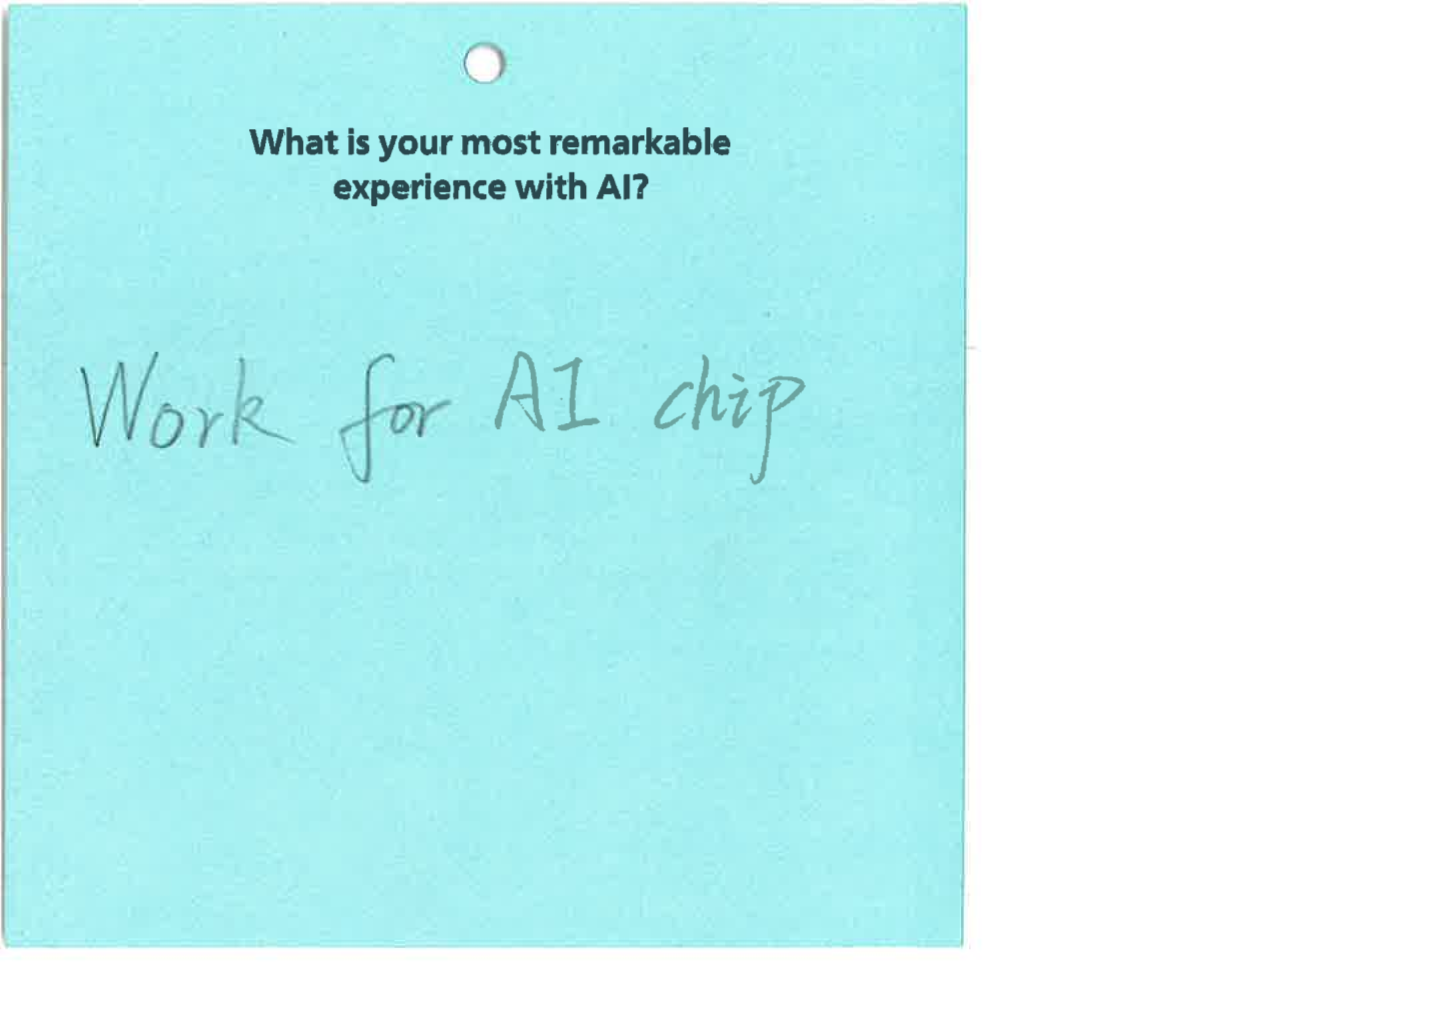 What is your most remarkable
experience with AI?
Work for AI chip